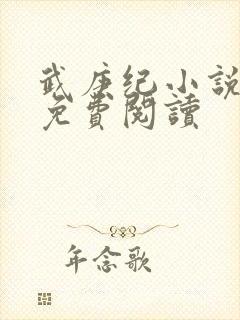 武庚纪小説
免費閱讀
年念歌